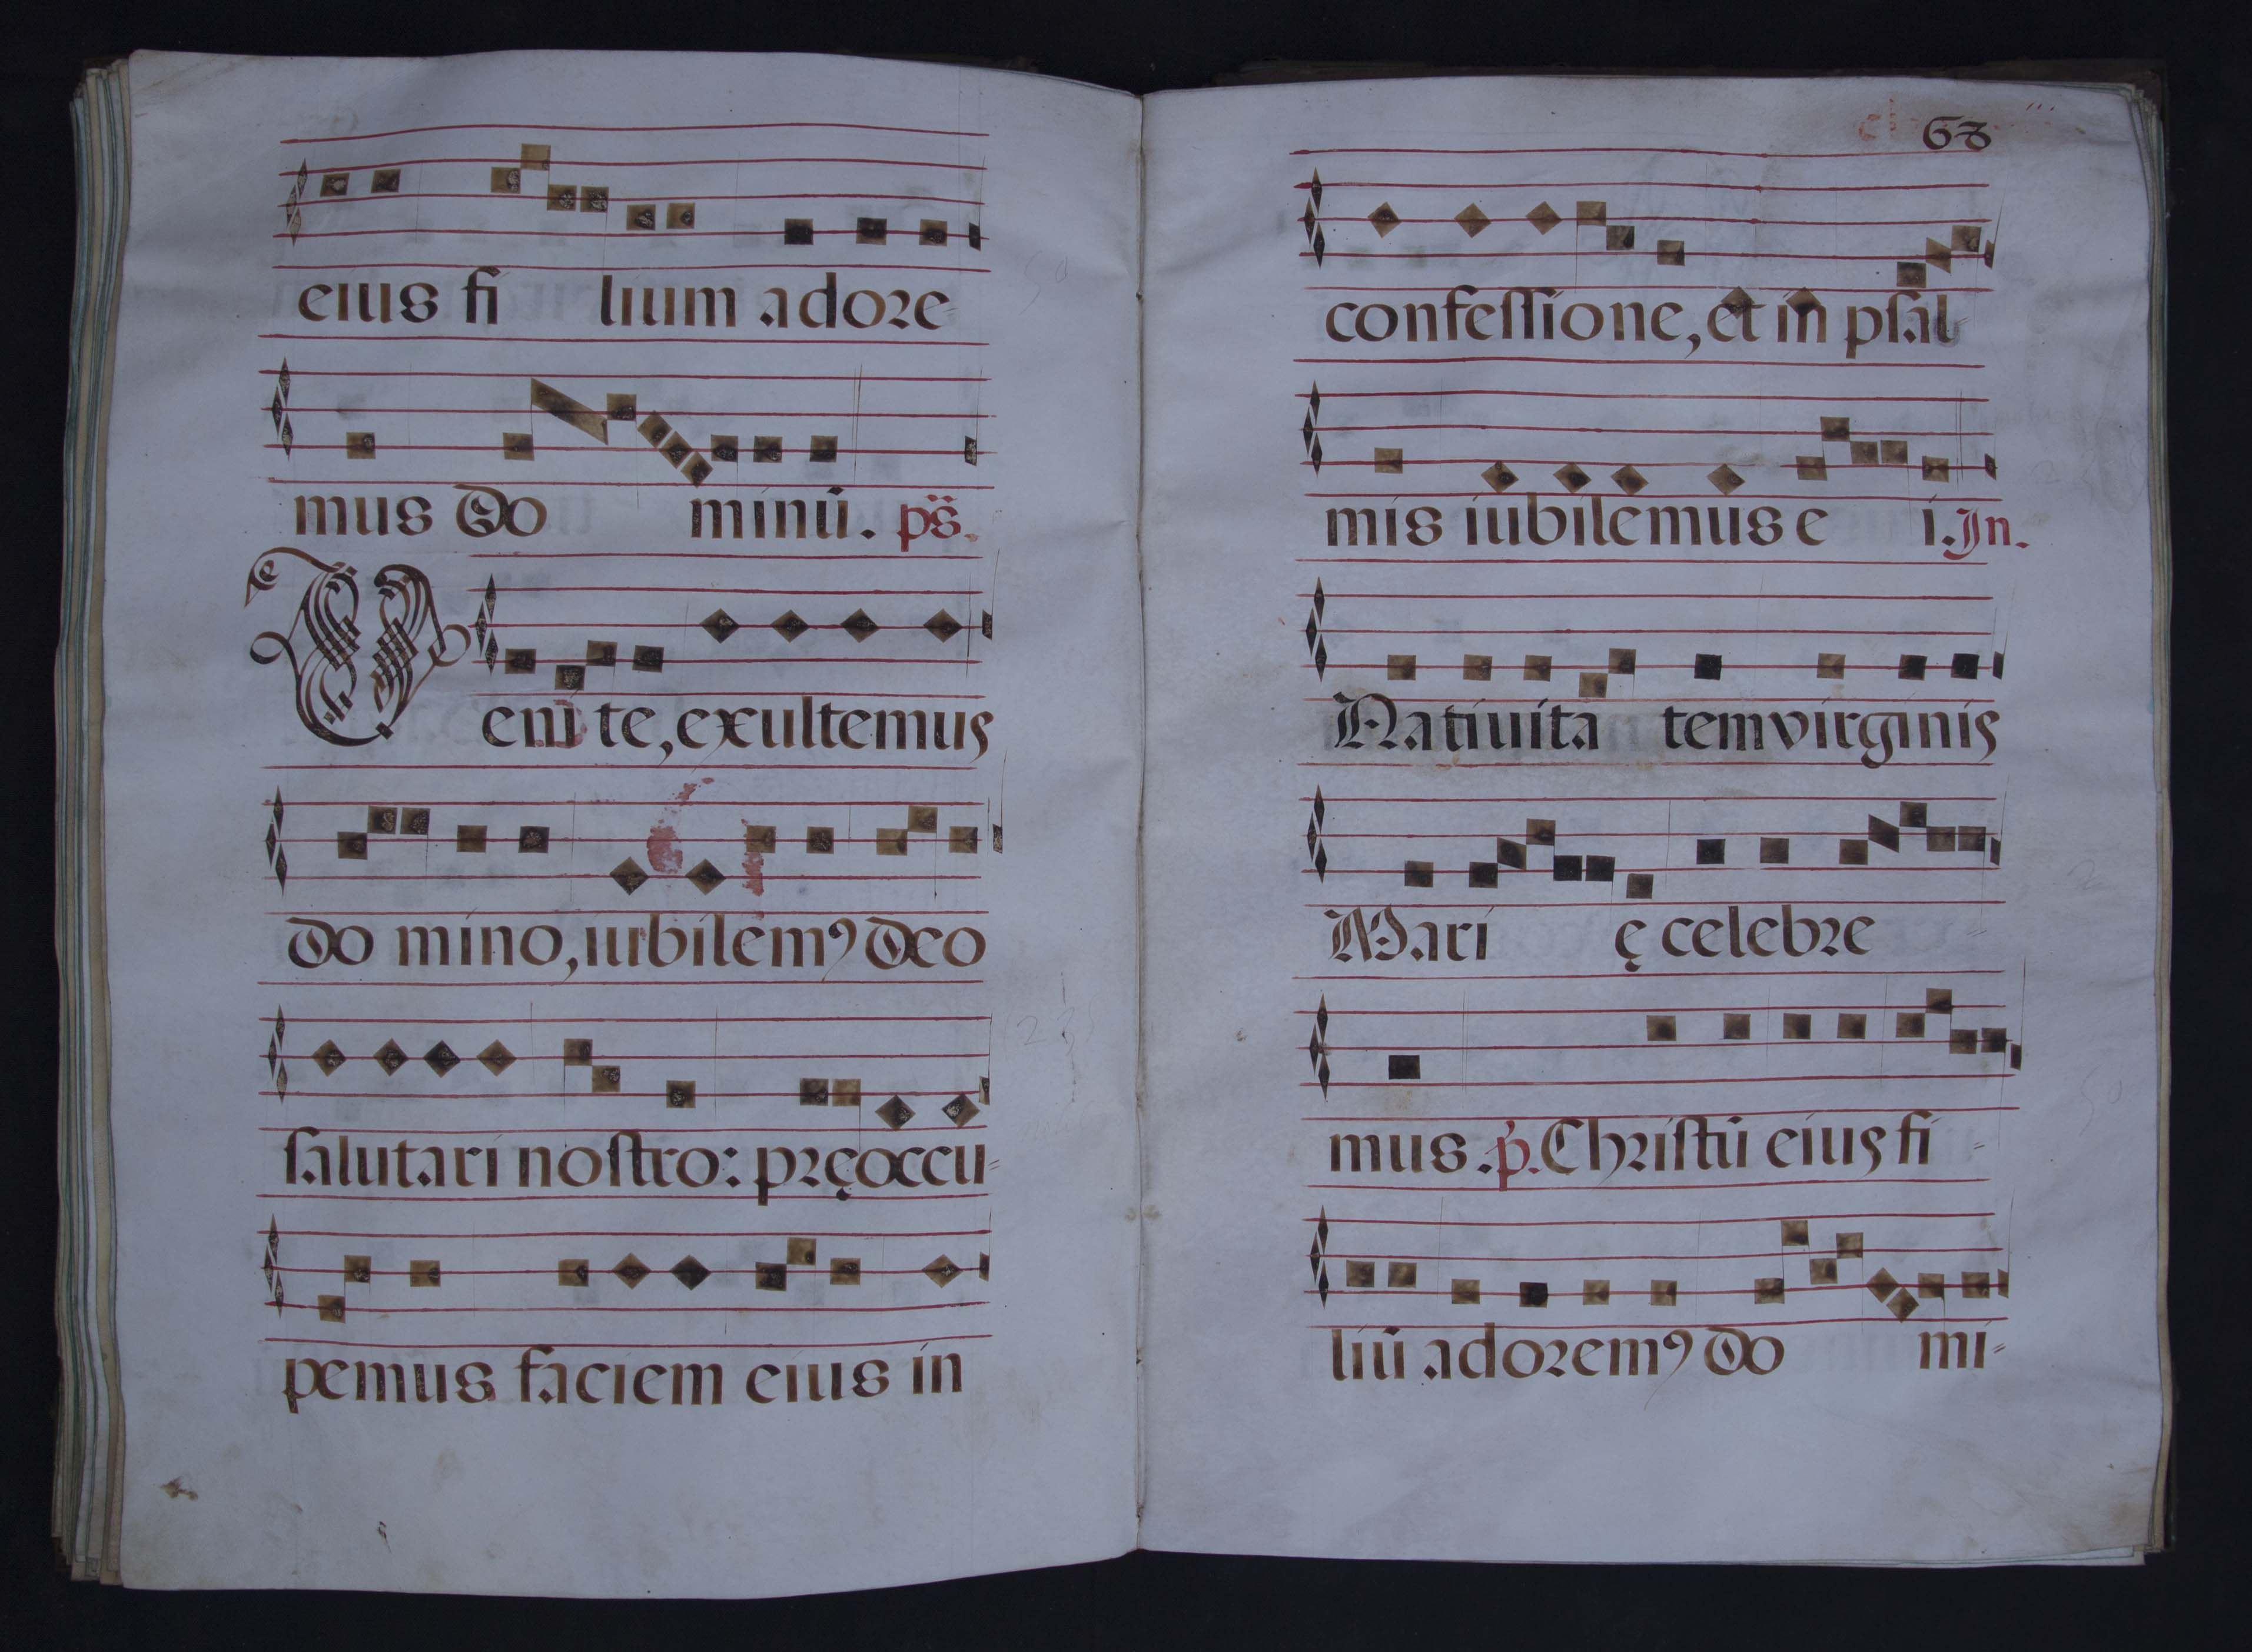 eius fi lium adore=
mus do minū. ps̄.
Veni te, exultemus
do mino, iubilemꝰ deo
salutari nostro: pręoccu=
pemus faciem eius in
68
confessione, et in psal=
mis iubilemus e i. In.
Natiuita tem virginis
Mari ę celebre=
mus. p̄. Christū eius fi=
liū adoremꝰ do mi=